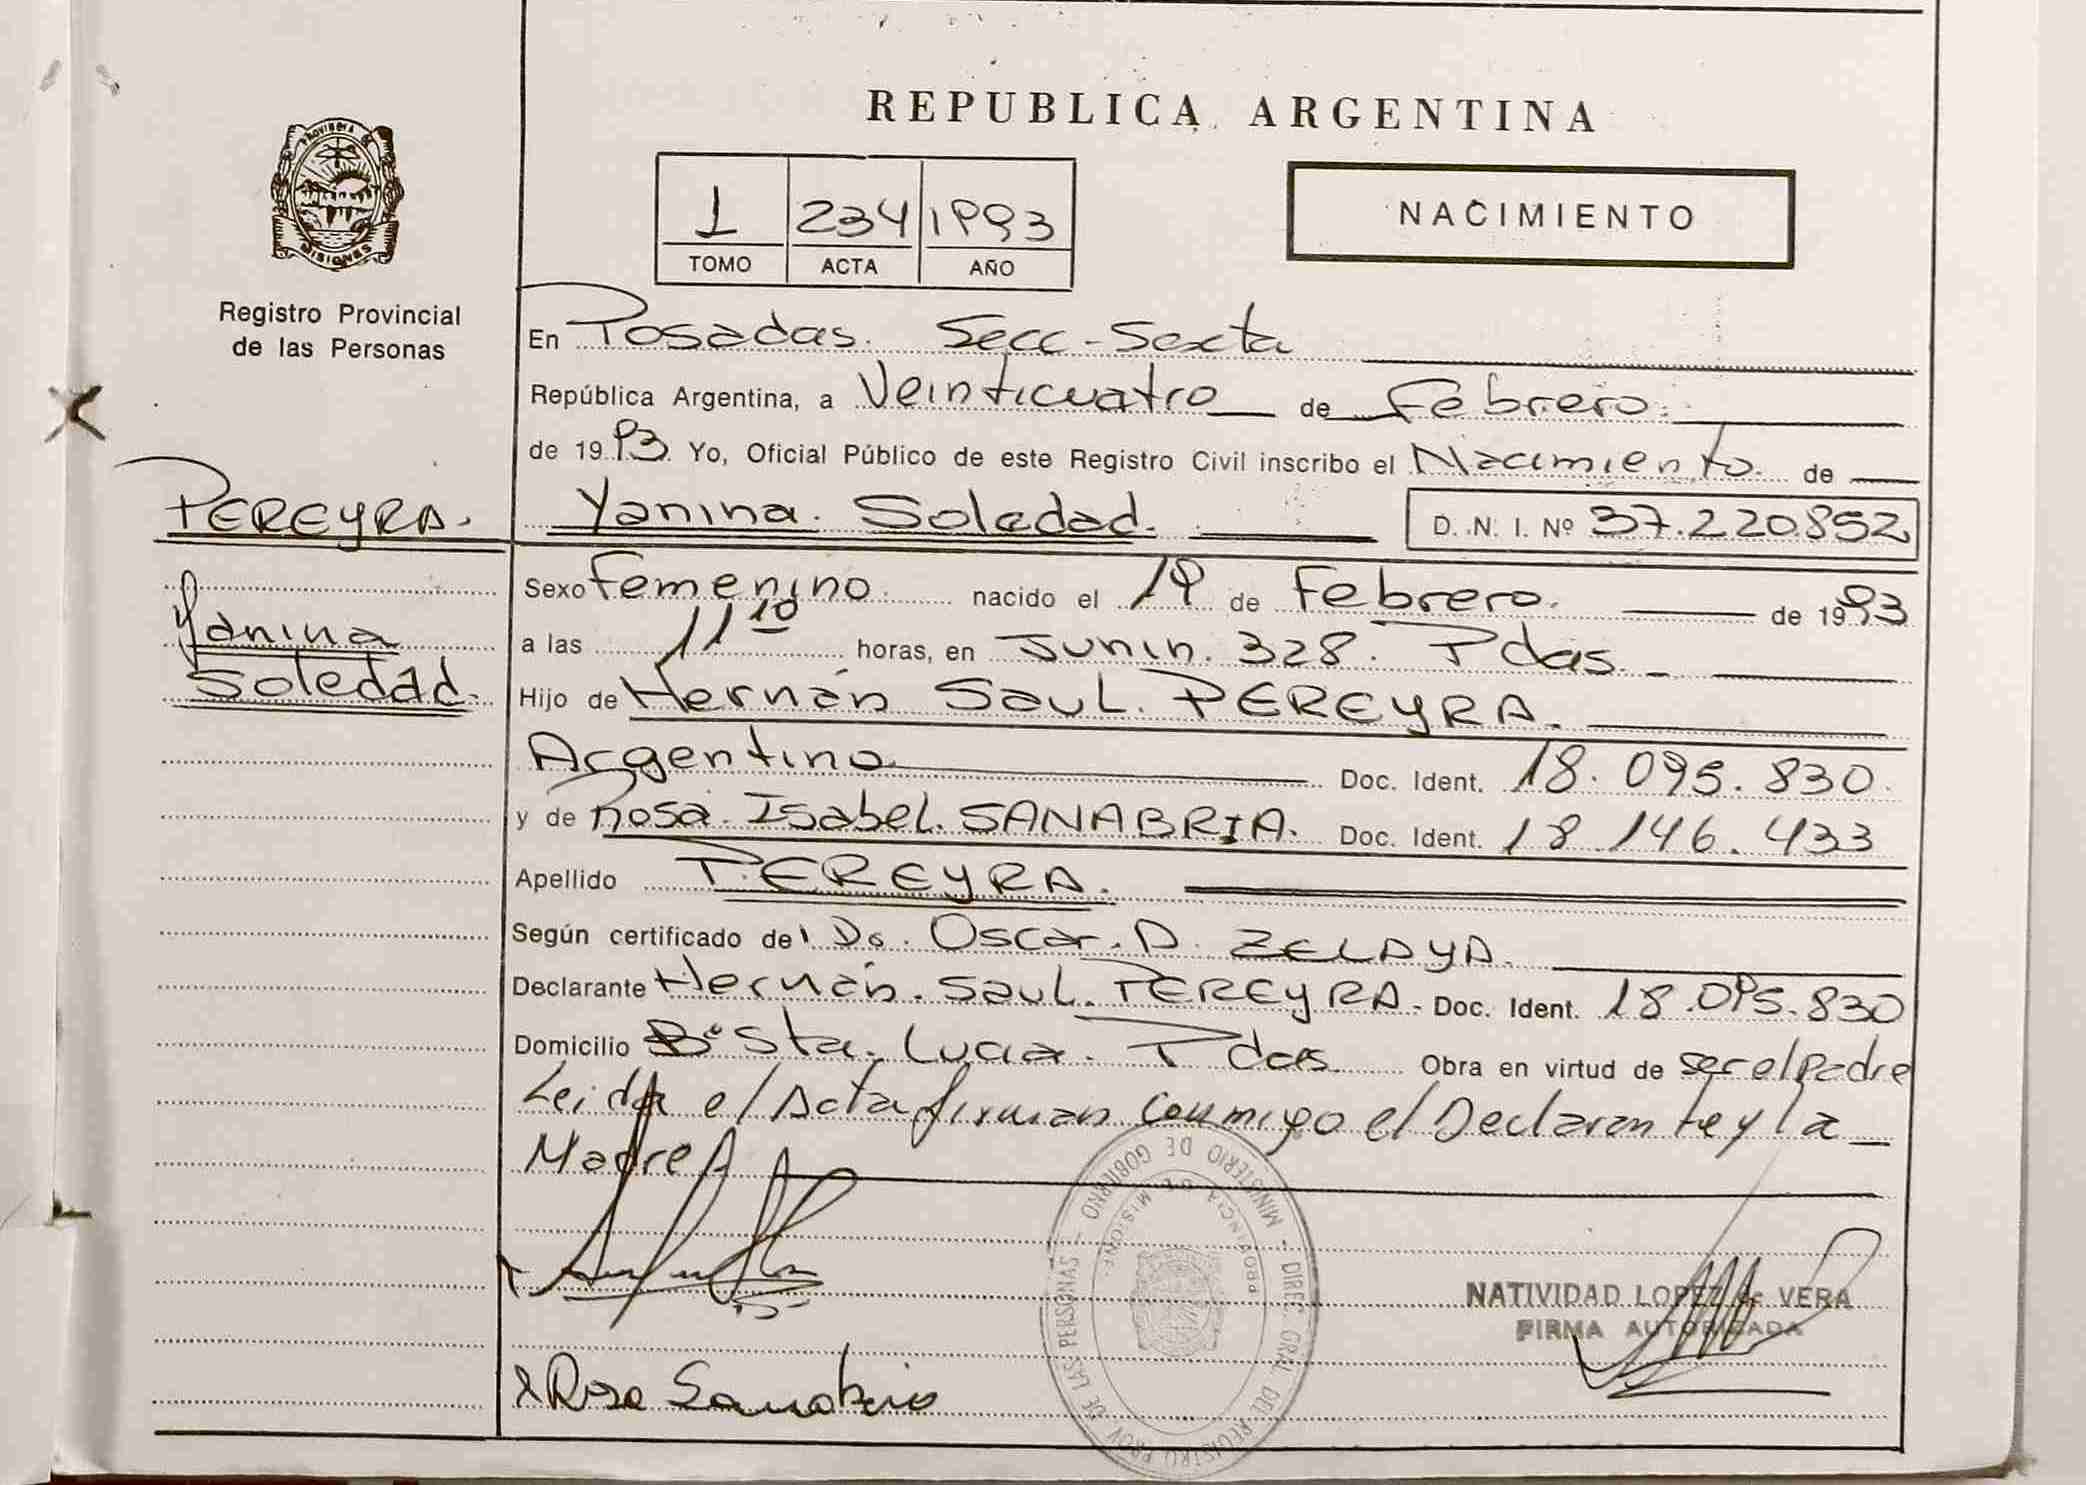 REPUBLICA ARGENTINA
PROVINCIA
MISIONES
Registro Provincial
de las Personas
1 234 1993
TOMO ACTA AÑO
NACIMIENTO
En Posadas. Secc-Sexta
República Argentina, a Veinticuatro de Febrero.
de 1993. Yo, Oficial Público de este Registro Civil inscribo el Nacimiento de
PEREYRA.
Yanina Soledad.
Yanina. Soledad.
D. N. I. Nº 37.220.852
Sexo femenino. nacido el 19 de Febrero. de 1993
a las 11 10 horas, en Junin. 328. Pdas.
Hijo de Hernán Saul. PEREYRA.
Argentino Doc. Ident. 18.095.830.
y de Rosa Isabel. SANABRIA. Doc. Ident. 18.146.433
Apellido PEREYRA.
Según certificado de Oscar. A. ZELAYA.
Declarante Hernán. Saul. PEREYRA. Doc. Ident. 18.095.830
Domicilio Bº Sta. Lucia. Pdas Obra en virtud de ser el padre
Leida el Acta firman conmigo el Declarante y la
Madre
MINISTERIO DE GOBIERNO - DIREC. GRAL. DEL REGISTRO PROV. DE LAS PERSONAS -
PROVINCIA DE MISIONES
NATIVIDAD LOPEZ de VERA
FIRMA AUTORIZADA
x Rosa Sanabria